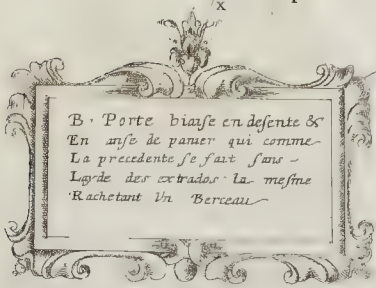 x
B · Porte biaise en desente &
En anse de panier qui comme
La precedente se fait sans -
Layde des extrados · la mesme
Rachetant Un Berceau